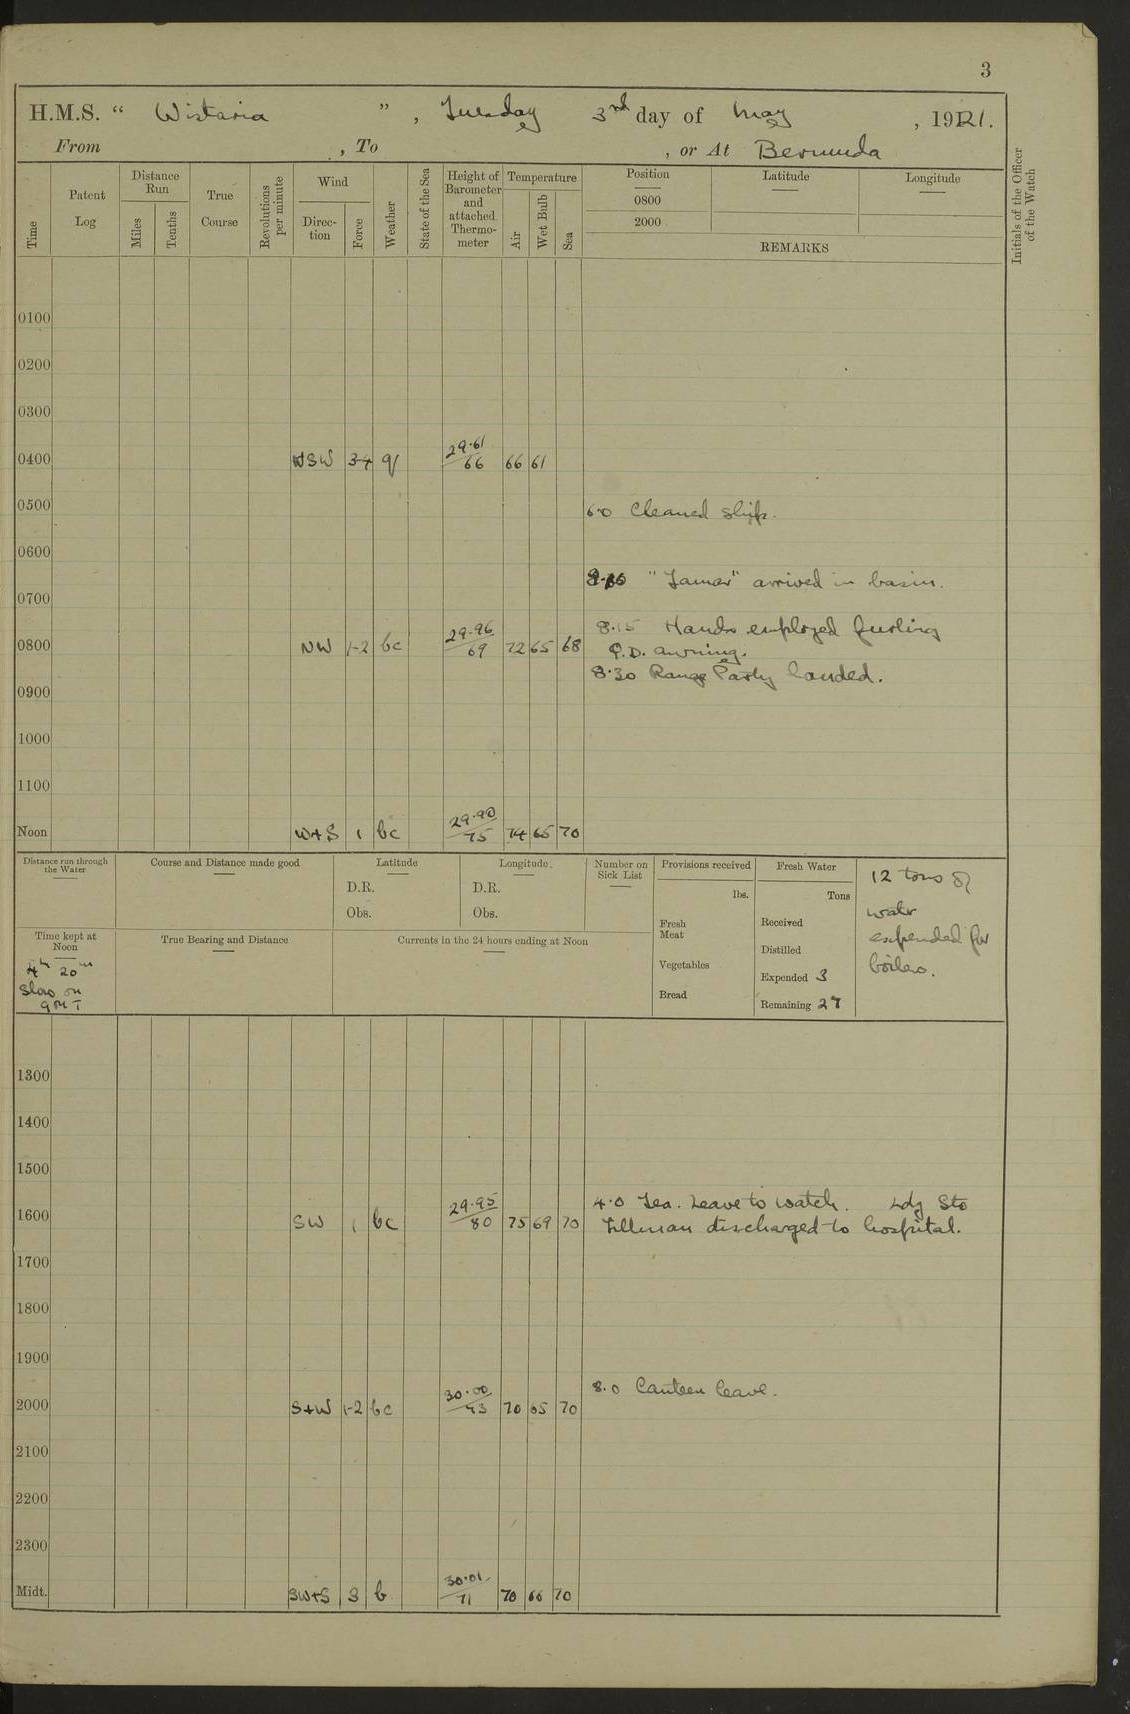 3
H.M.S. “ Wistaria ” , Tuesday 3rd day of May , 1921.
From , To , or At Bermuda
Time
Patent Log
Distance Run
Miles
Tenths
True Course
Revolutions per minute
Wind
Direc-tion
Force
Weather
State of the Sea
Height of Barometer and attached Thermo-meter
Temperature
Air
Wet Bulb
Sea
Position Latitude Longitude
0800
2000
REMARKS
Initials of the Officer of the Watch
0100
0200
0300
0400 WSW 3-4 q/ 29·61/66 66 61
0500
6·0 Cleaned ship.
0600
"Tamar" arrived in basin.
0700
8·15 Hands employed furling
0800 NW 1-2 bc 29·96/69 72 65 68 Q.D. awning.
8·30 Range Party landed.
0900
1000
1100
Noon W+S 1 bc 29·90/75 74 65 70
Distance run through the Water
Course and Distance made good
Latitude
D.R.
Obs.
Longitude.
D.R.
Obs.
Number on Sick List
Provisions received
lbs.
Fresh Meat
Vegetables
Bread
Fresh Water
Tons
Received
Distilled
Expended 3
Remaining 27
12 tons of
water
expended for
boilers.
Time kept at Noon
4h 20m
Slow on
GMT
True Bearing and Distance
Currents in the 24 hours ending at Noon
1300
1400
1500
4·0 Tea. Leave to watch. Ldg Sto
1600 SW 1 bc 29·95/80 75 69 70 Tillman discharged to hospital.
1700
1800
1900
8·0 Canteen leave.
2000 S+W 1-2 bc 30·00/73 70 65 70
2100
2200
2300
Midt. SW+S 3 b 30·01/71 70 66 70